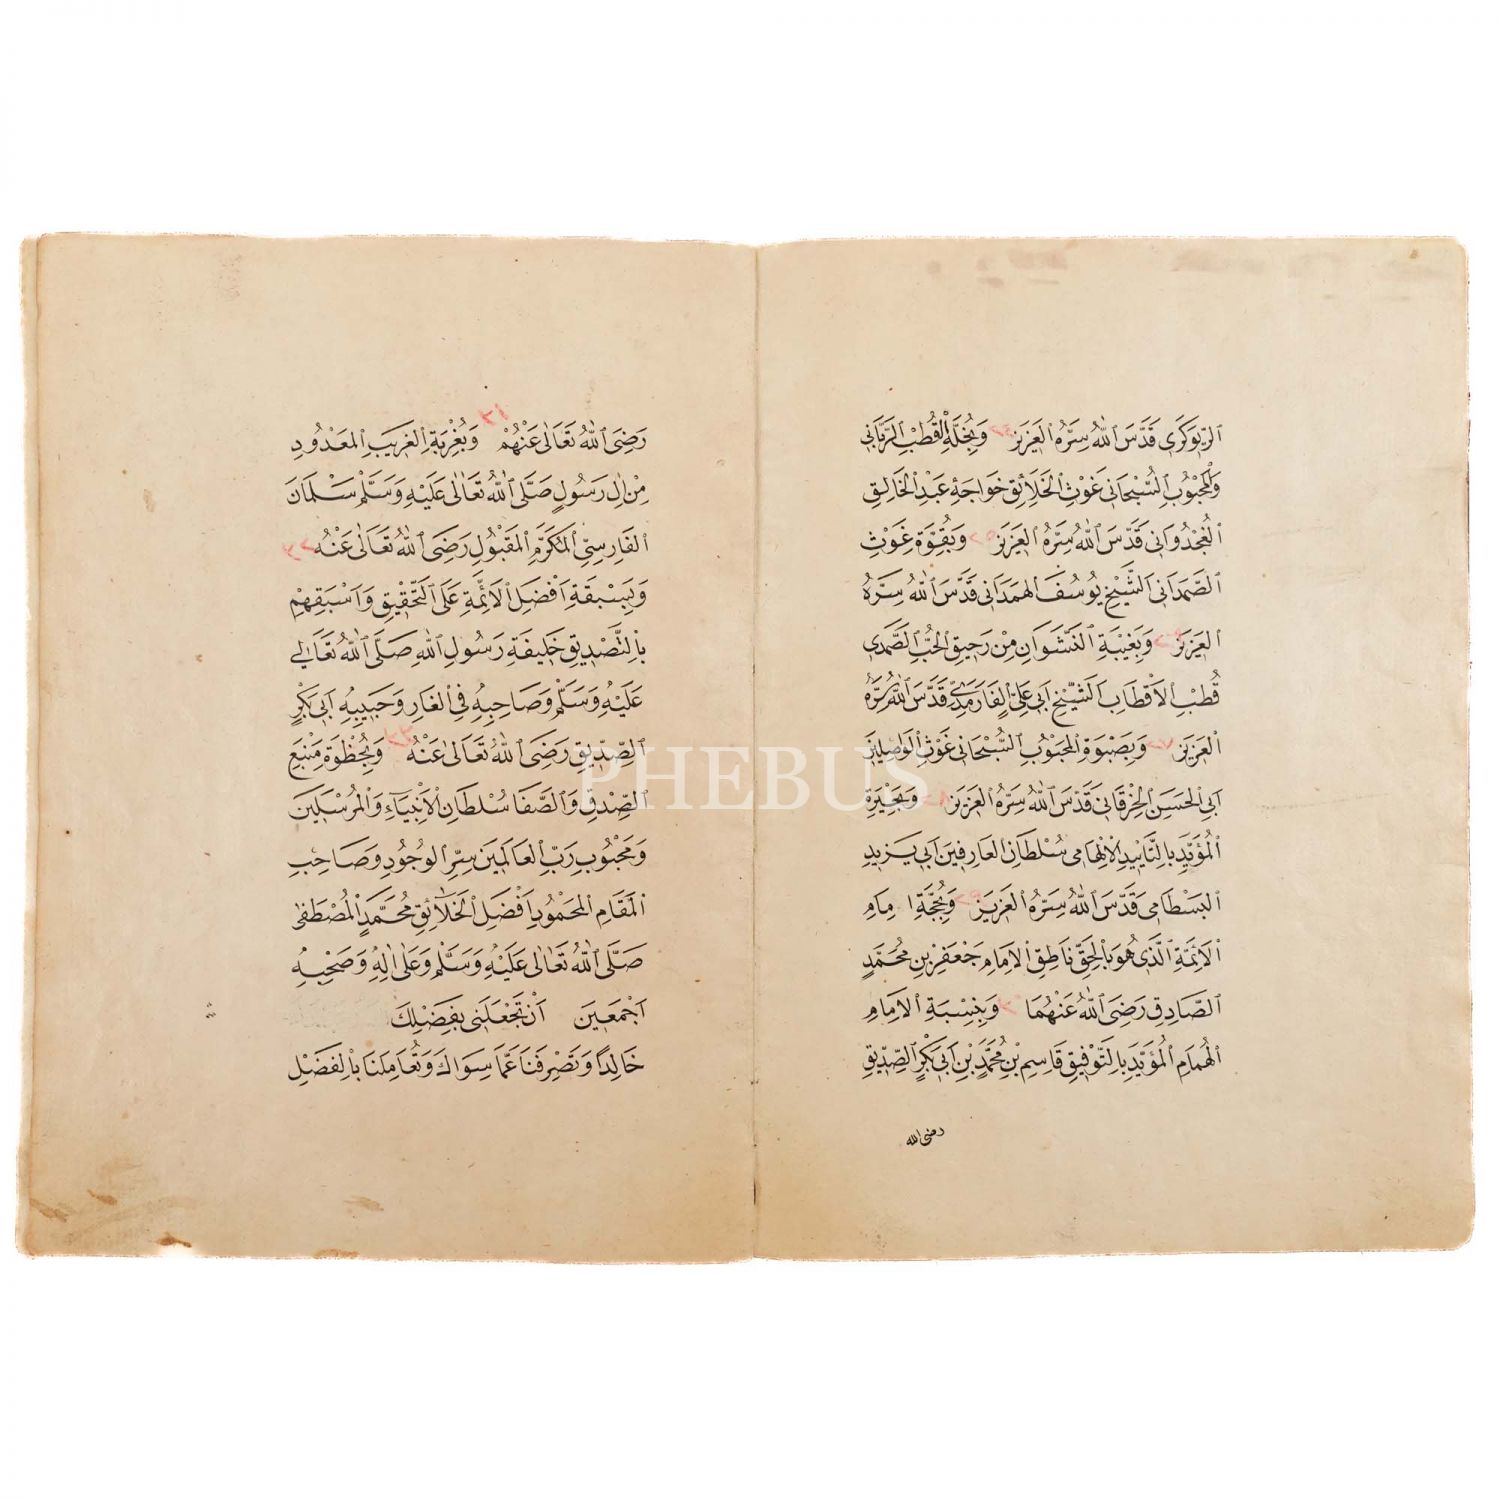 الرِّيوَكَرِى قَدَّسَ اللّٰهُ سِرَّهُ الْعَزِيز وَبِخُلَّةِ الْقُطْبِ الرَّبَّانِى
وَالْمَحْبُوبِ السُّبْحَانِى غَوْثِ الْخَلَائِقِ خَوَاجَهِ عَبْدِ الْخَالِقِ
الْغُجْدُوَانِى قَدَّسَ اللّٰهُ سِرَّهُ الْعَزِيز وَبِقُوَّةِ غَوْثِ
الصَّمَدَانِى الشَّيْخِ يُوسُفَ الْهَمَدَانِى قَدَّسَ اللّٰهُ سِرَّهُ
الْعَزِيز وَبِغَيْبَةِ النَّشْوَانِ مِنْ رَحِيقِ الْحُبِّ الصَّمَدِى
قُطْبِ الْاَقْطَابِ الشَّيْخِ اَبِى عَلِىٍّ الْفَارْمَدِىْ قَدَّسَ اللّٰهُ سِرَّهُ
الْعَزِيز وَبِصَبْوَةِ الْمَحْبُوبِ السُّبْحَانِى غَوْثِ الْوَاصِلِينَ
اَبِى الْحَسَنِ الْخِرْقَانِى قَدَّسَ اللّٰهُ سِرَّهُ الْعَزِيز وَبِحَيْرَةِ
الْمُؤَيَّدِ بِالتَّأْيِيدِ الْاِلْهَامِى سُلْطَانِ الْعَارِفِينَ اَبِى يَزِيدِ
الْبَسْطَامِى قَدَّسَ اللّٰهُ سِرَّهُ الْعَزِيز وَبِحُجَّةِ اِمَامِ
الْاَئِمَّةِ الَّذِى هُوَ بِالْحَقِّ نَاطِقِ الْاِمَامِ جَعْفَرِ بْنِ مُحَمَّدٍ
الصَّادِقِ رَضِىَ اللّٰهُ عَنْهُمَا وَبِنِسْبَةِ الْاِمَامِ
الْهُمَامِ الْمُؤَيَّدِ بِالتَّوْفِيقِ قَاسِمِ بْنِ مُحَمَّدِ بْنِ اَبِى بَكْرٍ الصِّدِّيقِ
رضى الله
رَضِىَ اللّٰهُ تَعَالٰى عَنْهُمْ وَبِغُرْبَةِ الْغَرِيبِ الْمَعْدُودِ
مِنْ اٰلِ رَسُولٍ صَلَّى اللّٰهُ تَعَالٰى عَلَيْهِ وَسَلَّمَ سَلْمَانَ
الْفَارِسِىِّ الْمُكَرَّمِ الْمَقْبُولِ رَضِىَ اللّٰهُ تَعَالٰى عَنْهُ
وَبِسَبْقَةِ اَفْضَلِ الْاَئِمَّةِ عَلَى التَّحْقِيقِ وَاَسْبَقِهِمْ
بِالتَّصْدِيقِ خَلِيفَةِ رَسُولِ اللّٰهِ صَلَّى اللّٰهُ تَعَالٰى
عَلَيْهِ وَسَلَّمَ وَصَاحِبِهِ فِى الْغَارِ وَحَبِيبِهِ اَبِى بَكْرٍ
الصِّدِّيقِ رَضِىَ اللّٰهُ تَعَالٰى عَنْهُ وَبِحُظْوَةِ مَنْبَعِ
الصِّدْقِ وَالصَّفَا سُلْطَانِ الْاَنْبِيَآءِ وَالْمُرْسَلِينَ
وَمَحْبُوبِ رَبِّ الْعَالَمِينَ سِرِّ الْوُجُودِ وَصَاحِبِ
الْمَقَامِ الْمَحْمُودِ اَفْضَلِ الْخَلَآئِقِ مُحَمَّدٍ الْمُصْطَفٰى
صَلَّى اللّٰهُ تَعَالٰى عَلَيْهِ وَسَلَّمَ وَعَلٰى اٰلِهِ وَصَحْبِهِ
اَجْمَعِينَ اَنْ تَجْعَلَنِى بِفَضْلِكَ
خَالِدًا وَتَصْرِفَنَا عَمَّا سِوَاكَ وَتُعَامِلَنَا بِالْفَضْلِ
PHEBUS